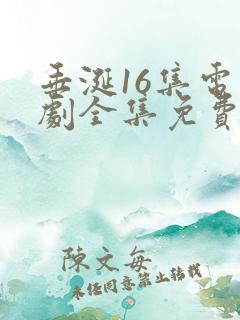 垂涎16集電
劇全集免費
陳文每
未經同意禁止轉載